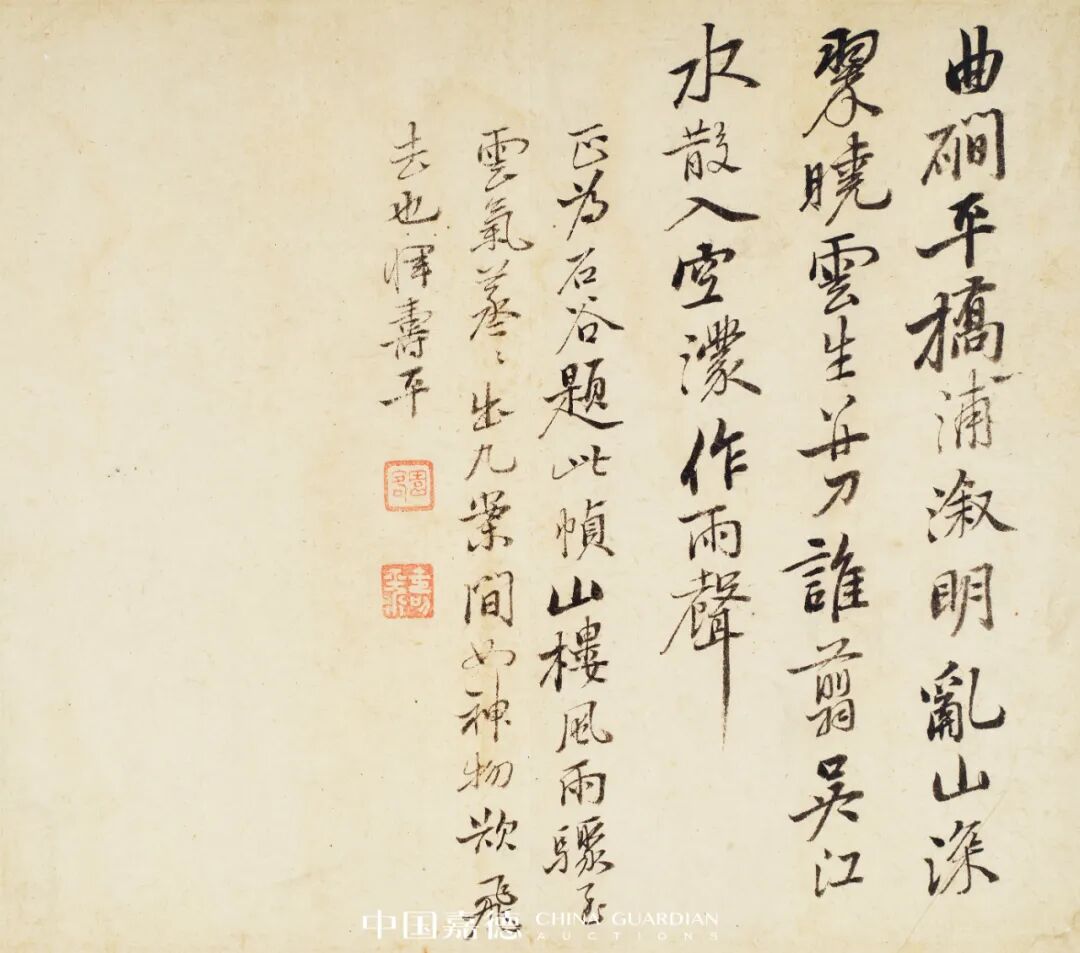 曲磵平橋浦溆明亂山深
翠曉雲生并刀誰翦吳江
水散入空濛作雨聲
正為石谷題此幀山樓風雨驟至
雲氣蓊〻出几案間如神物欲飛
去也惲壽平
壽平
中国嘉德 CHINA GUARDIAN
AUCTIONS